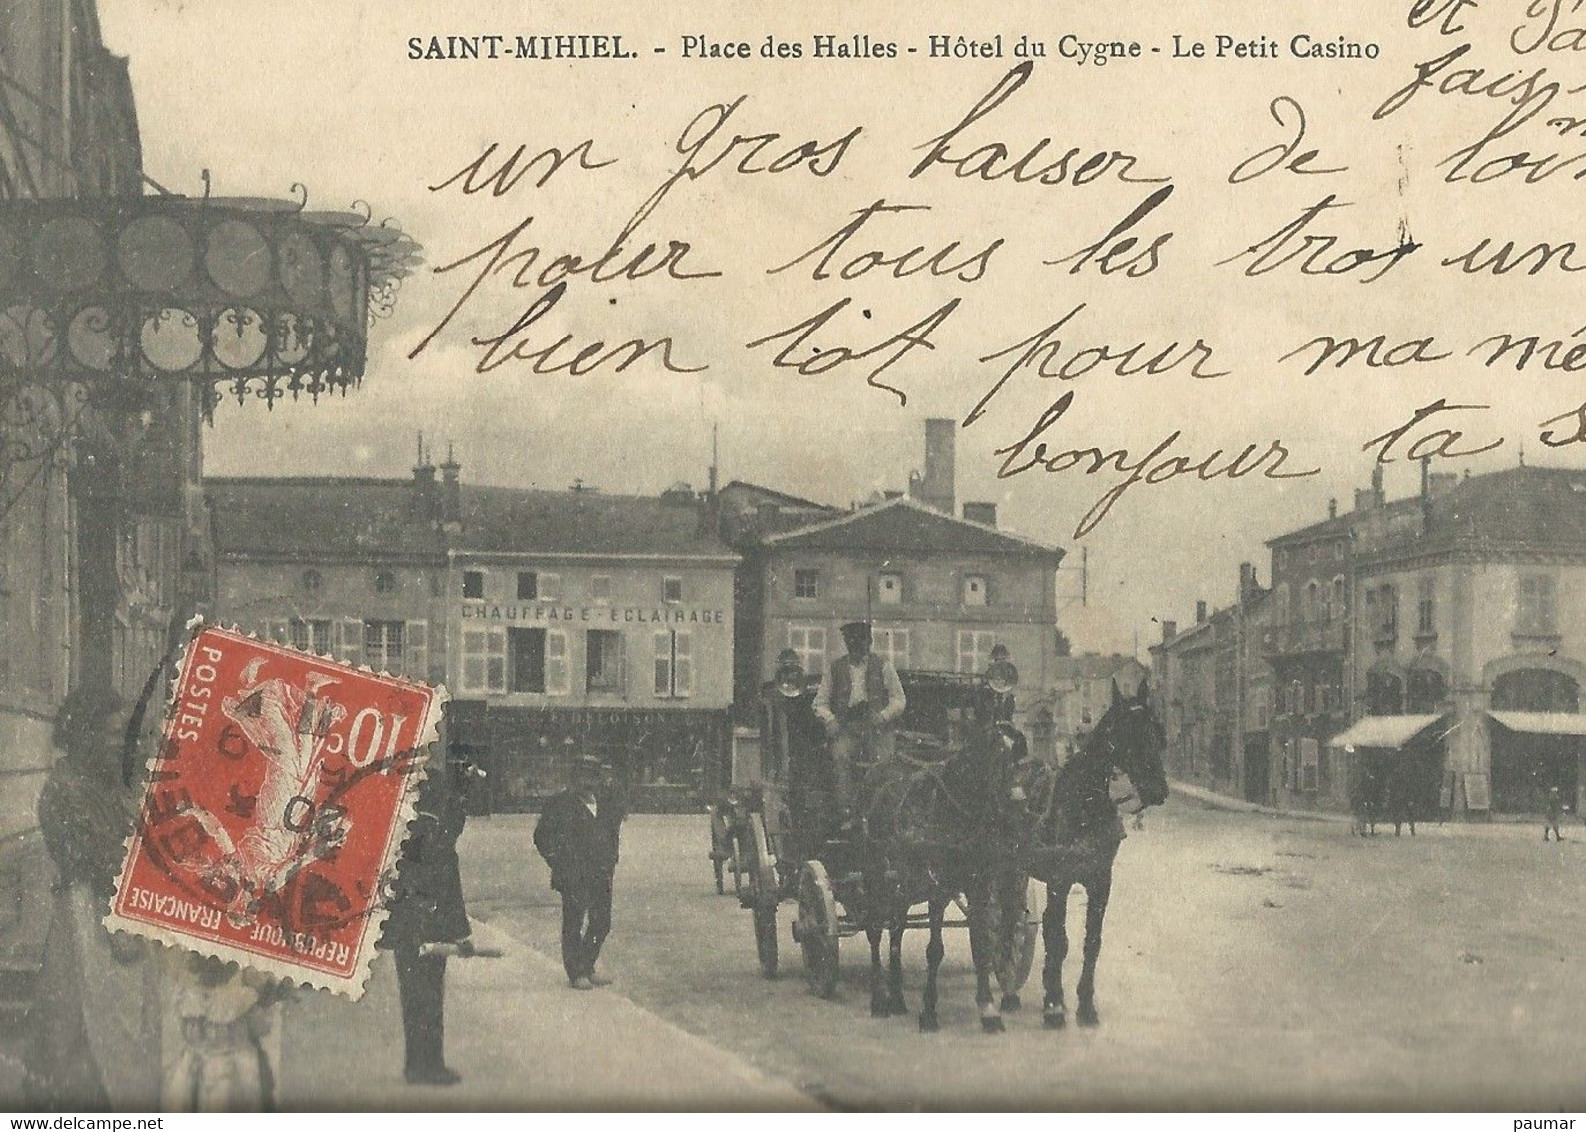 SAINT-MIHIEL. - Place des Halles - Hôtel du Cygne - Le Petit Casino
et
fais
un gros baiser de loin
pour tous les trois un
bien tôt pour ma mé
bonjour ta s
CHAUFFAGE - ECLAIRAGE
DELOISON
POSTES
10c
REPUBLIQUE FRANCAISE
paumar